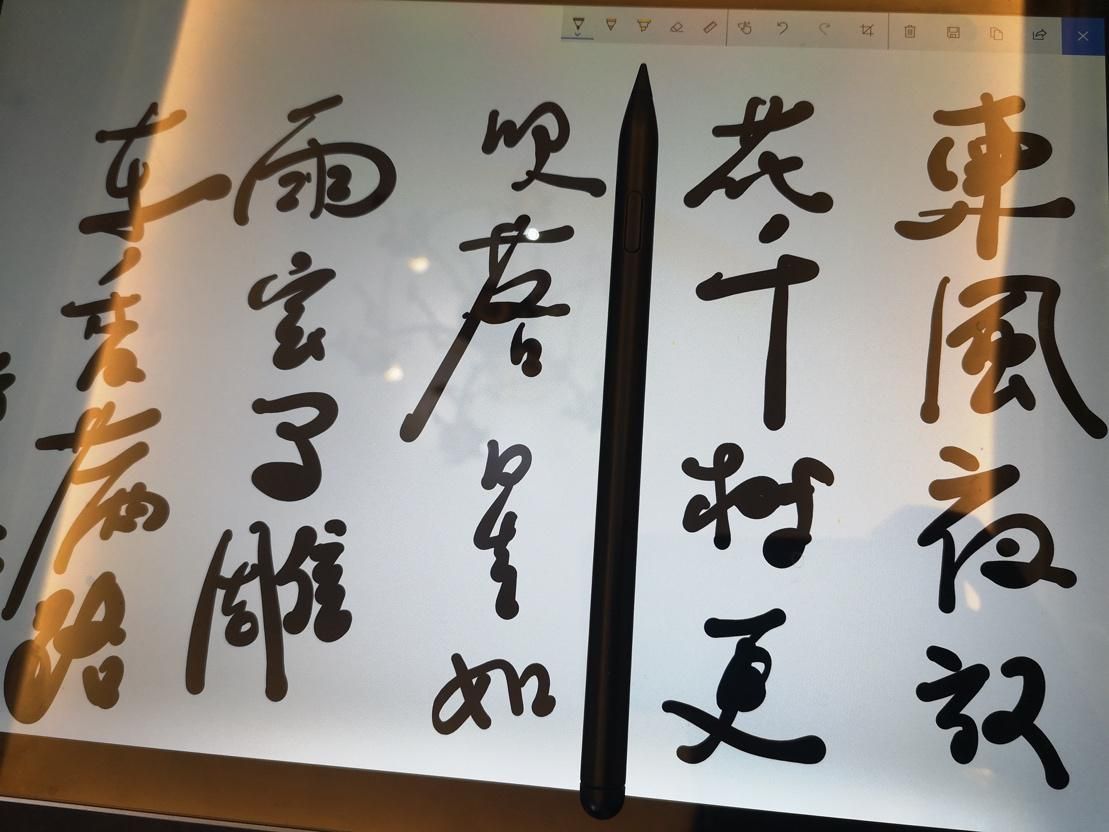 東風夜放
花千樹更
吹落星如
雨宝马雕
車香满路